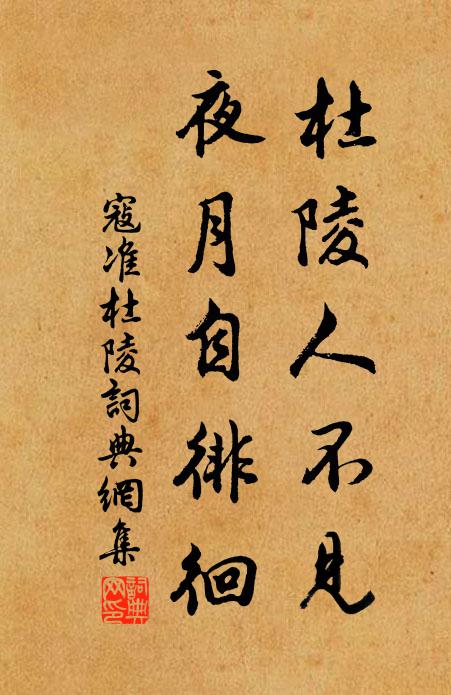 杜陵人不見
夜月自徘徊
寇准杜陵詞典網集
詞典
网印